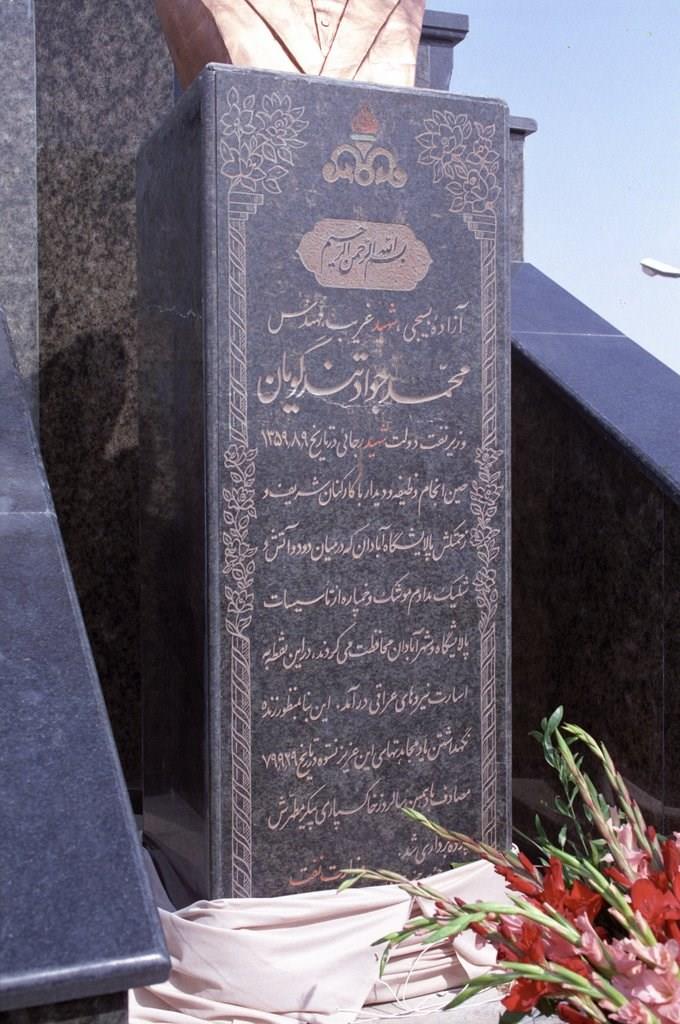 بسم الله الرحمن الرحیم
آزاده بسیجی، شهید غریب، مهندس
محمد جواد تندگویان
وزیر نفت دولت شهید رجائی در تاریخ ۱۳۵۹٫۸٫۹
حین انجام وظیفه و دیدار با کارکنان شریف و
زحمتکش پالایشگاه آبادان که در میان دود و آتش و
شلیک مداوم موشک و خمپاره از تاسیسات
پالایشگاه و شهر آبادان محافظت می کردند، در این نقطه به
اسارت نیروهای عراقی درآمد. این بنا بمنظور زنده
نگهداشتن یاد مجاهدتهای این عزیز نستوه در تاریخ ۷۹٫۹٫۲۹
مصادف با دهمین سالروز خاکسپاری پیکر مطهرش
پرده برداری شد.
وزارت نفت